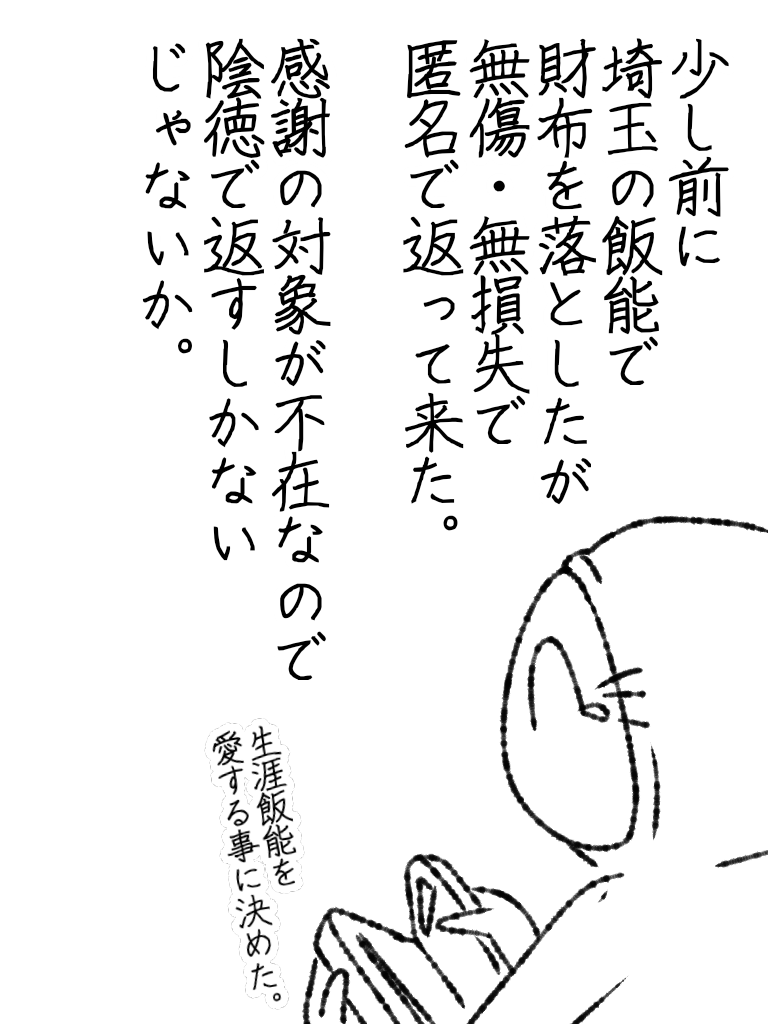 少し前に
埼玉の飯能で
財布を落としたが
無傷・無損失で
匿名で返って来た。
感謝の対象が不在なので
陰徳で返すしかない
じゃないか。
生涯飯能を
愛する事に決めた。